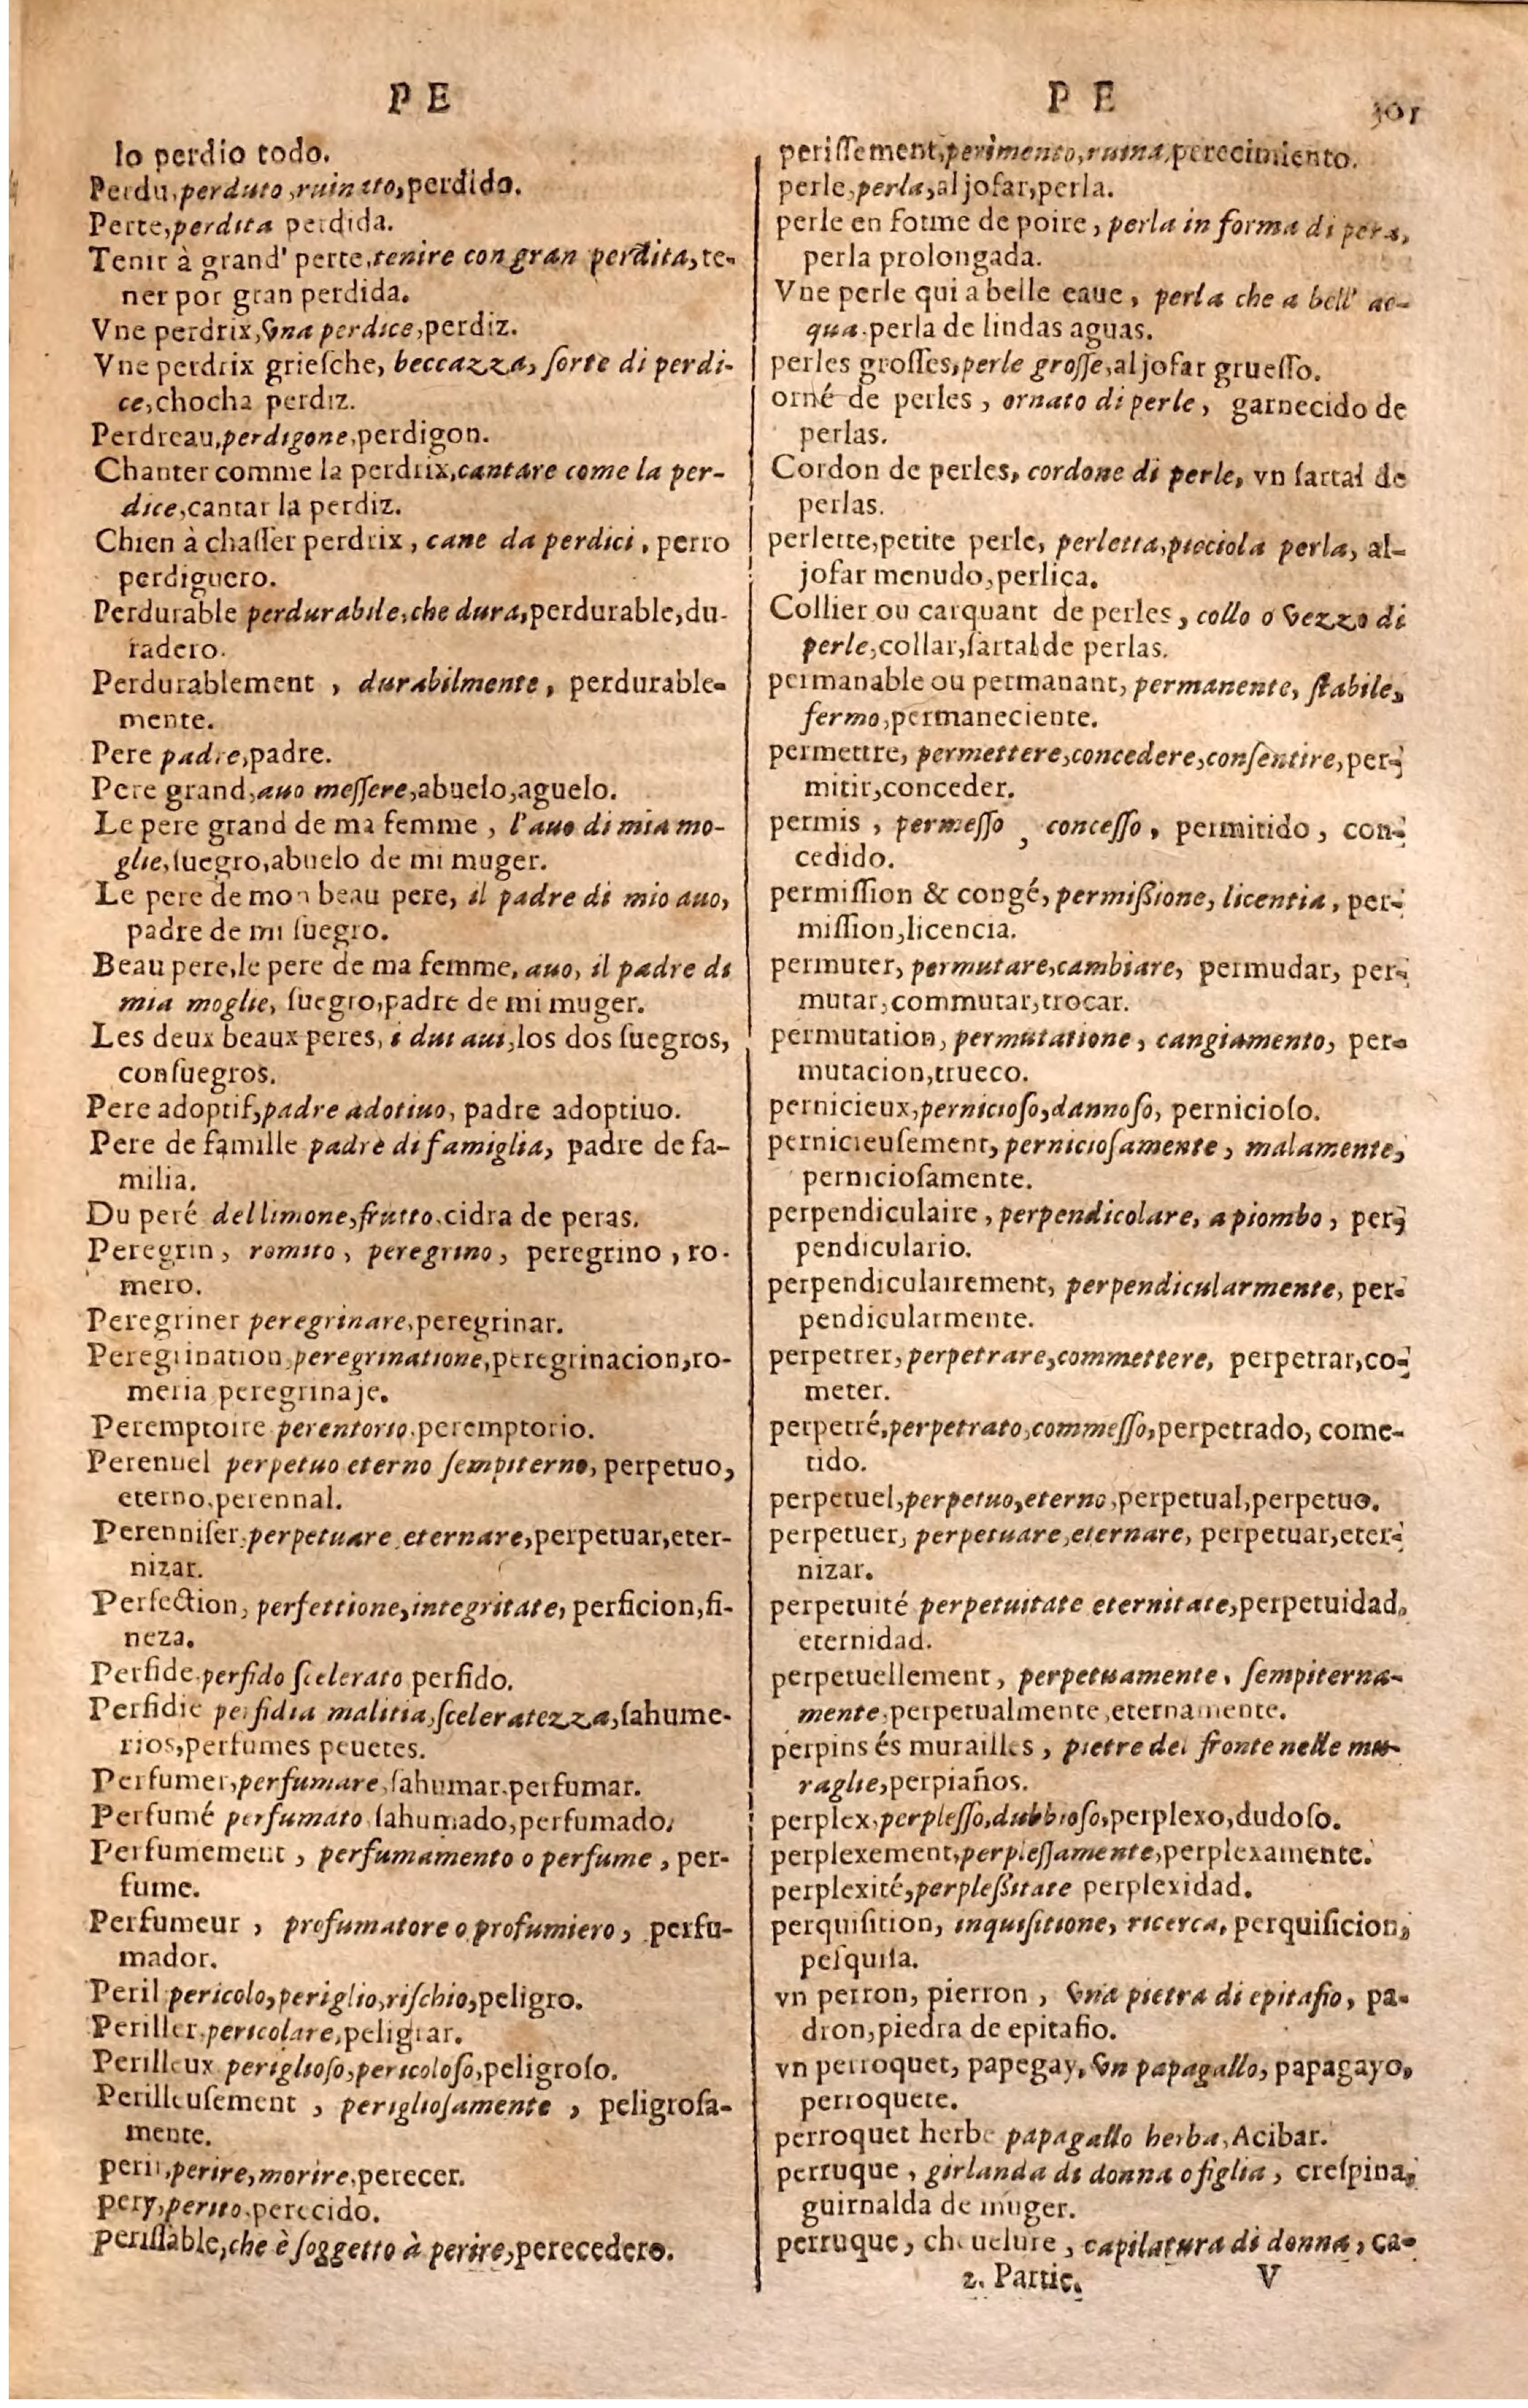 P E
lo perdio todo.
Perdu, perduto, ruinato, perdido.
Perte, perdita perdida.
Tenir à grand' perte, tenire con gran perdita, te-
ner por gran perdida.
Vne perdrix, vna perdice, perdiz.
Vne perdrix grieſche, beccazza, ſorte di perdi-
ce, chocha perdiz.
Perdreau, perdigone, perdigon.
Chanter comme la perdrix, cantare come la per-
dice, cantar la perdiz.
Chien à chaſſer perdrix, cane da perdici, perro
perdiguero.
Perdurable perdurabile, che dura, perdurable, du-
radero.
Perdurablement, durabilmente, perdurable-
mente.
Pere padre, padre.
Pere grand, auo meſſere, abuelo, aguelo.
Le pere grand de ma femme, l'auo di mia mo-
glie, ſuegro, abuelo de mi muger.
Le pere de mon beau pere, il padre di mio auo,
padre de mi ſuegro.
Beau pere, le pere de ma femme, auo, il padre di
mia moglie, ſuegro, padre de mi muger.
Les deux beaux peres, i dui aui, los dos ſuegros,
conſuegros.
Pere adoptif, padre adotiuo, padre adoptiuo.
Pere de famille padre di famiglia, padre de fa-
milia.
Du peré del limone, frutto. cidra de peras.
Peregrin, romito, peregrino, peregrino, ro-
mero.
Peregriner peregrinare, peregrinar.
Peregrination, peregrinatione, peregrinacion, ro-
meria peregrinaje.
Peremptoire perentorio. peremptorio.
Perennel perpetuo eterno ſempiterno, perpetuo,
eterno, perennal.
Perenniſer, perpetuare eternare, perpetuar, eter-
nizar.
Perfection, perfettione, integritate, perficion, fi-
neza.
Perfide, perfido ſcelerato perfido.
Perfidie perfidia malitia, ſceleratezza, ſahume-
rios, perfumes peuetes.
Perfumer, perfumare, ſahumar. perfumar.
Perfumé perfumato ſahumado, perfumado.
Perfumement, perfumamento o perfume, per-
fume.
Perfumeur, profumatore o profumiero, perfu-
mador.
Peril pericolo, periglio, riſchio, peligro.
Periller, pericolare, peligrar.
Perilleux periglioſo, pericoloſo, peligroſo.
Perilleuſement, periglioſamente, peligroſa-
mente.
perir, perire, morire, perecer.
pery, perito. perecido.
periſſable, che è ſoggetto à perire, perecedero.
P E 301
periſſement, perimento, ruina, perecimiento.
perle, perla, aljofar, perla.
perle en forme de poire, perla in forma di pera,
perla prolongada.
Vne perle qui a belle eaue, perla che a bell' ac-
qua. perla de lindas aguas.
perles groſſes, perle groſſe, aljofar grueſſo.
orné de perles, ornato di perle, garnecido de
perlas.
Cordon de perles, cordone di perle, vn ſartal de
perlas.
perlette, petite perle, perletta, picciola perla, al-
jofar menudo, perlica.
Collier ou carquant de perles, collo o vezzo di
perle, collar, ſartal de perlas.
permanable ou permanant, permanente, ſtabile,
fermo, permaneciente.
permettre, permettere, concedere, conſentire, per-
mitir, conceder.
permis, permeſſo, conceſſo, permitido, con-
cedido.
permiſſion & congé, permißione, licentia, per-
miſſion, licencia.
permuter, permutare, cambiare, permudar, per-
mutar, commutar, trocar.
permutation, permutatione, cangiamento, per-
mutacion, trueco.
pernicieux, pernicioſo, dannoſo, pernicioſo.
pernicieuſement, pernicioſamente, malamente,
pernicioſamente.
perpendiculaire, perpendicolare, a piombo, per-
pendiculario.
perpendiculairement, perpendicularmente, per-
pendicularmente.
perpetrer, perpetrare, commettere, perpetrar, co-
meter.
perpetré, perpetrato, commeſſo, perpetrado, come-
tido.
perpetuel, perpetuo, eterno, perpetual, perpetuo.
perpetuer, perpetuare, eternare, perpetuar, eter-
nizar.
perpetuité perpetuitate eternitate, perpetuidad,
eternidad.
perpetuellement, perpetuamente, ſempiterna-
mente, perpetualmente, eternamente.
perpins és murailles, pietre dei fronte nelle mu-
raglie, perpiaños.
perplex, perpleſſo, dubbioſo, perplexo, dudoſo.
perplexement, perpleſſamente, perplexamente.
perplexité, perpleßitate perplexidad.
perquiſition, inquiſitione, ricerca, perquiſicion,
peſquiſa.
vn perron, pierron, vna pietra di epitafio, pa-
dron, piedra de epitafio.
vn perroquet, papegay, vn papagallo, papagayo,
perroquete.
perroquet herbe papagallo herba, Acibar.
perruque, girlanda di donna o figlia, creſpina,
guirnalda de muger.
perruque, cheuelure, capilatura di donna, ca-
2. Partie. V